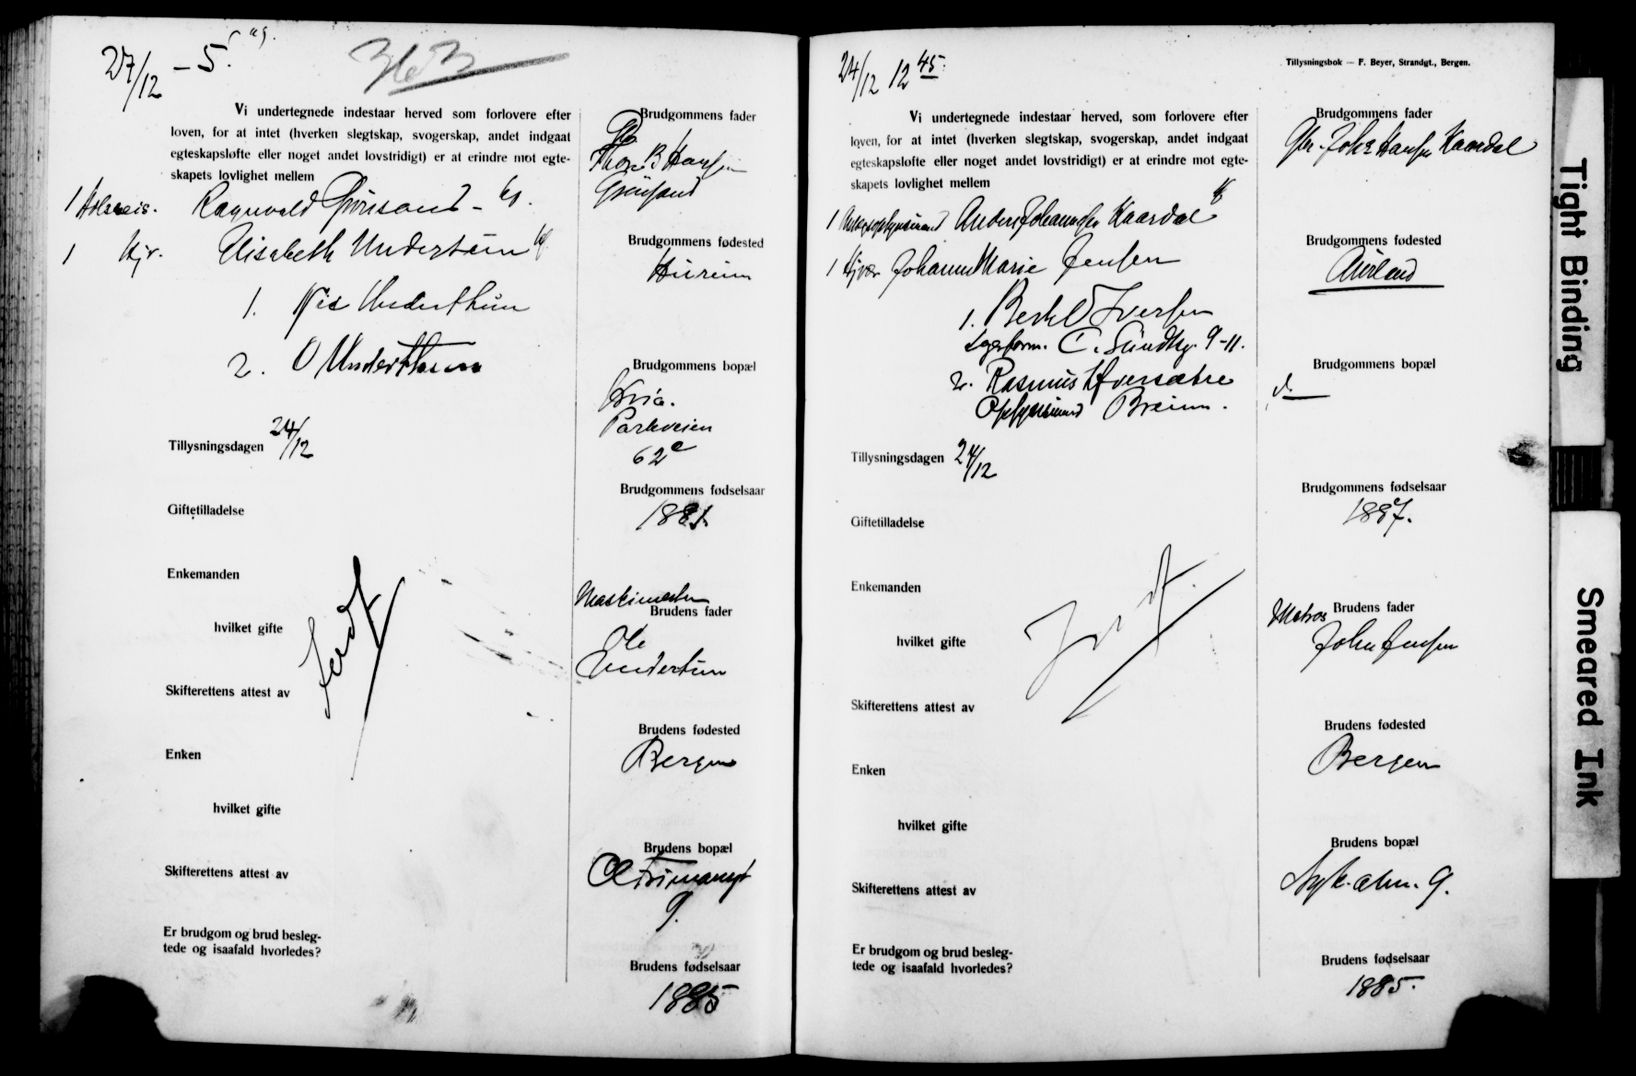 27/12 – 5.
Vi undertegnede indestaar herved som forlovere efter
loven, for at intet (hverken slegtskap, svogerskap, andet indgaat
egteskapsløfte eller noget andet lovstridigt) er at erindre mot egte-
skapets lovlighet mellem
1
Ragnvald
1
Elisabeth Undertun
1. Underthun
2. O Underthun
Tillysningsdagen 24/12
Giftetilladelse
Enkemanden
hvilket gifte
Skifterettens attest av
Enken
hvilket gifte
Skifterettens attest av
Er brudgom og brud besleg-
tede og isaafald hvorledes?
Brudgommens fader
Brudgommens fødested
Hurum
Brudgommens bopæl
Kria.
Parkveien
62
Brudgommens fødselsaar
Brudens fader
Ole
Undertun
Brudens fødested
Bergen
Brudens bopæl
9.
Brudens fødselsaar
1885
24/12 12 45.
Tillysningsbok — F. Beyer, Strandgt., Bergen.
Vi undertegnede indestaar herved, som forlovere efter
loven, for at intet (hverken slegtskap, svogerskap, andet indgaat
egteskapsløfte eller noget andet lovstridigt) er at erindre mot egte-
skapets lovlighet mellem
1 Anders Johannesen Kaardal
1 Johanne Marie Jensen
1. Iversen
C. Sundtsg. 9-11.
2. Rasmus
Tillysningsdagen 24/12
Giftetilladelse
Enkemanden
hvilket gifte
Skifterettens attest av
Enken
hvilket gifte
Skifterettens attest av
Er brudgom og brud besleg-
tede og isaafald hvorledes?
Brudgommens fader
Gbr. Johs Hansen Kaardal
Brudgommens fødested
Aurland
Brudgommens bopæl
d.
Brudgommens fødselsaar
1887.
Matros Brudens fader
John Jensen
Brudens fødested
Bergen
Brudens bopæl
Nyk. alm. 9.
Brudens fødselsaar
1885.
Tight Binding
Smeared Ink